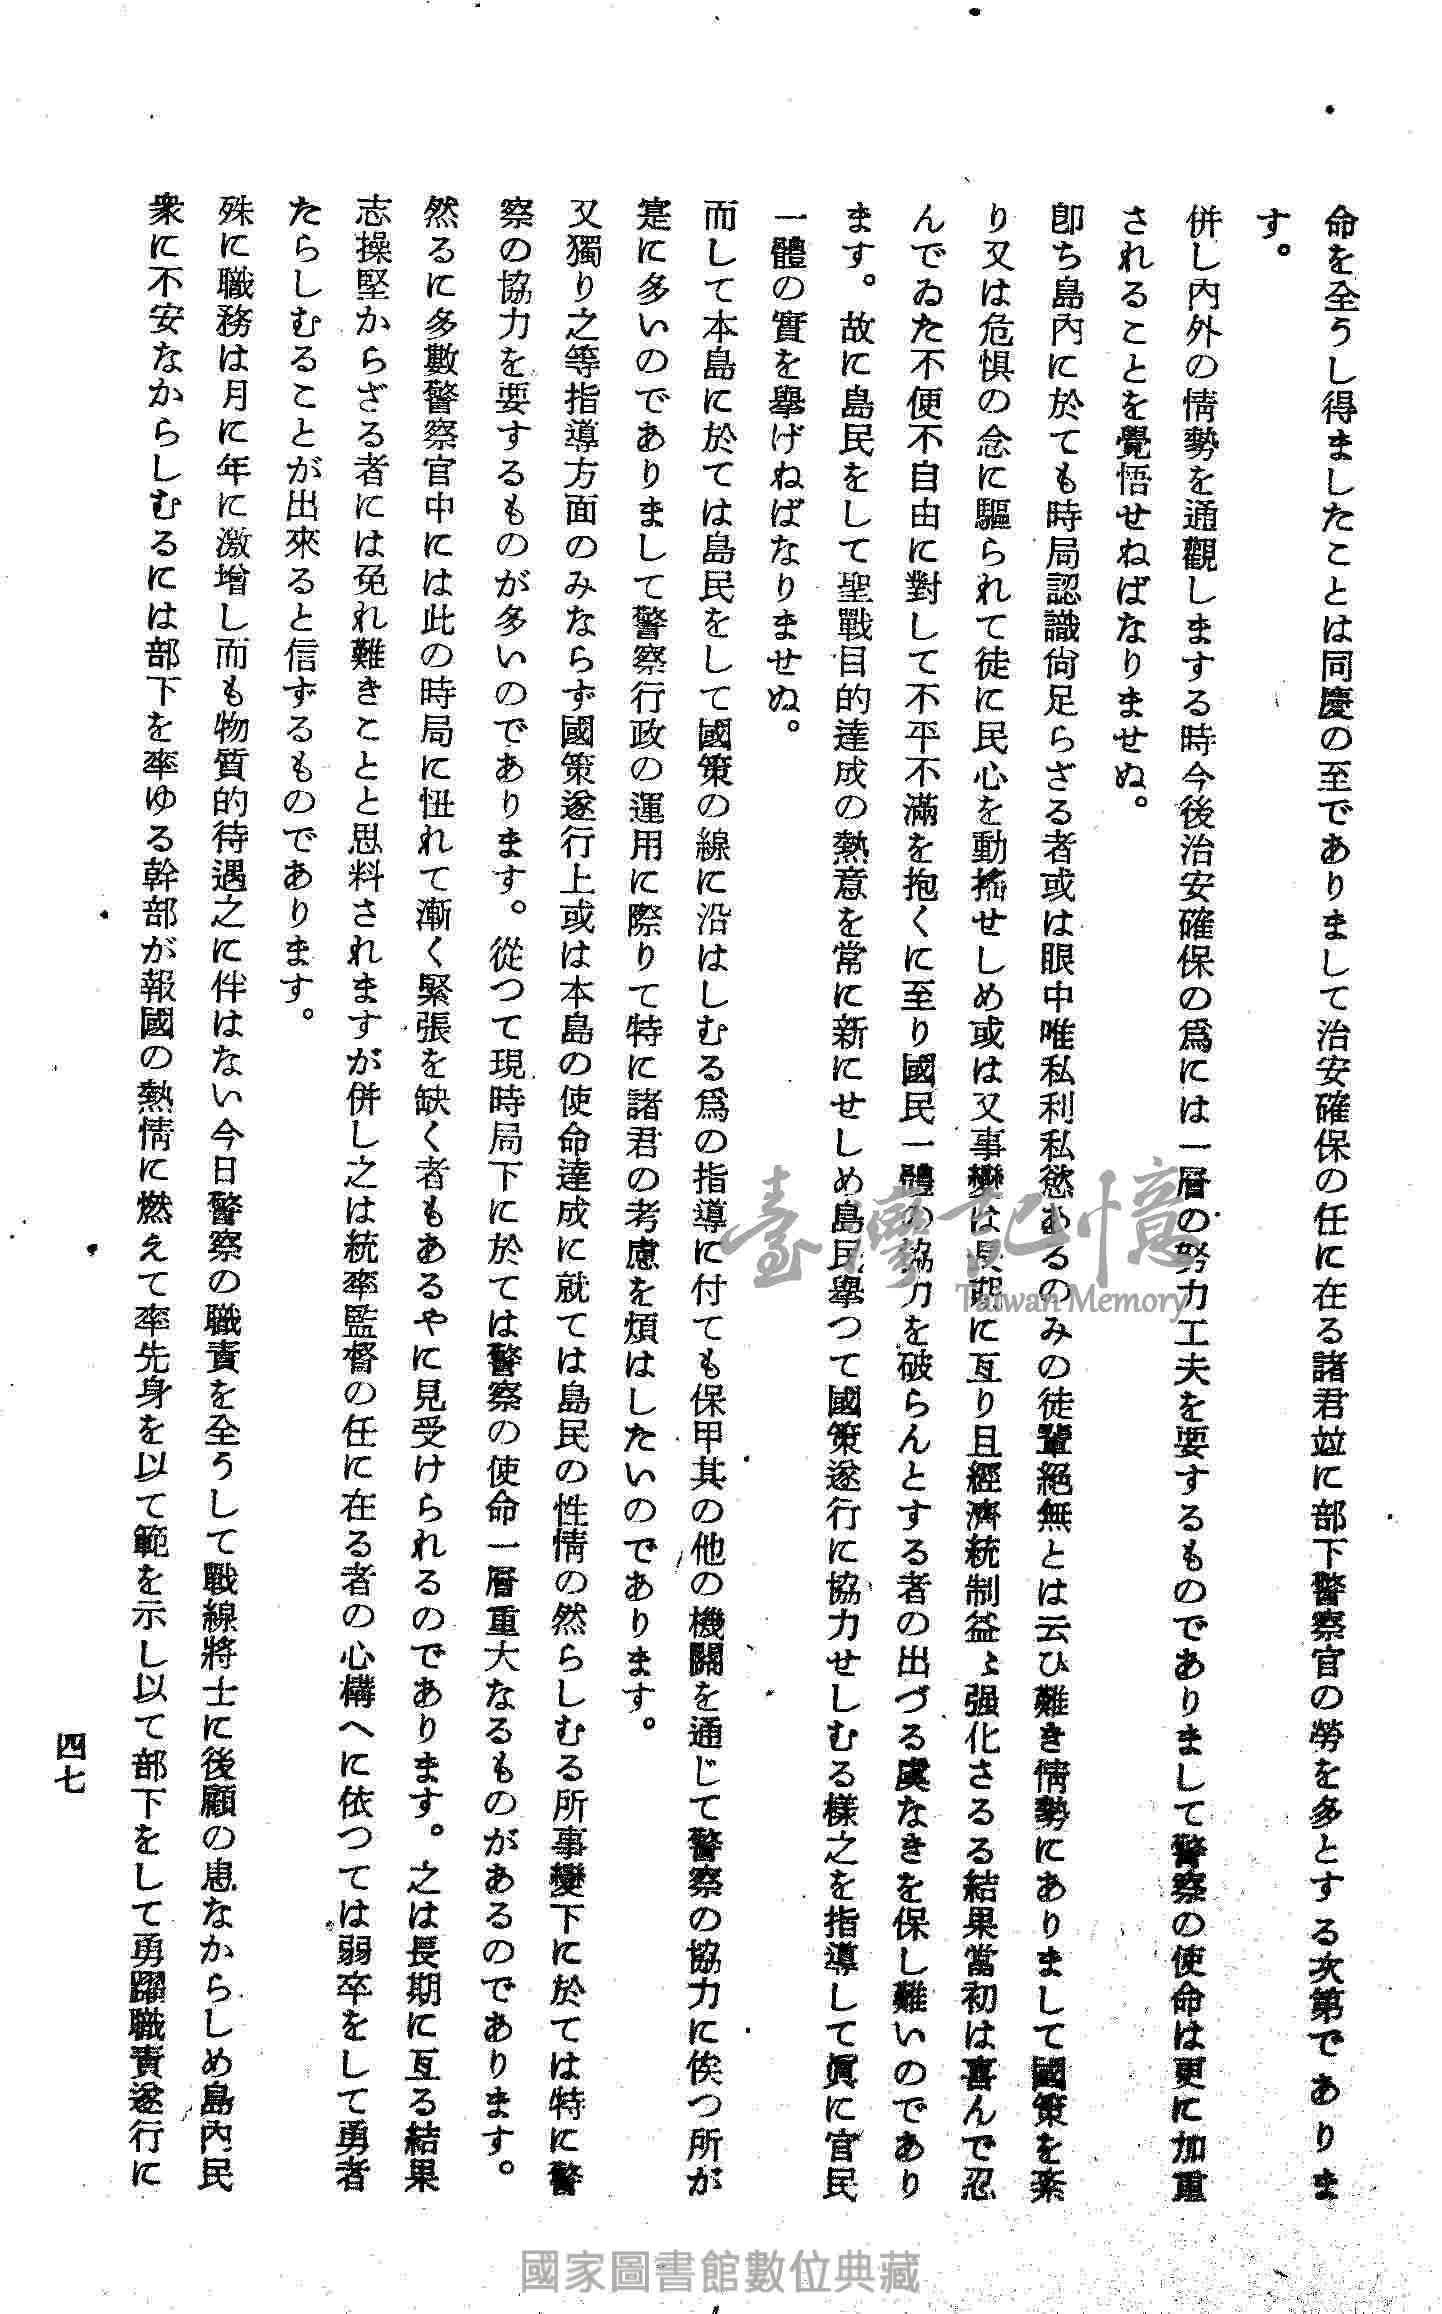 命を全うし得ましたことは同慶の至でありまして治安確保の任に在る諸君竝に部下警察官の勞を多とする次第でありま
す。
併し內外の情勢を通觀しまする時今後治安確保の爲には一層の努力工夫を要するものでありまして警察の使命は更に加重
されることを覺悟せねばなりませぬ。
卽ち島內に於ても時局認識尙足らざる者或は眼中唯私利私慾あるのみの徒輩絕無とは云ひ難き情勢にありまして國策を紊
り又は危惧の念に驅られて徒に民心を動搖せしめ或は又事變は長期に亙り且經濟統制益〻强化さるる結果當初は喜んで忍
んでゐた不便不自由に對して不平不滿を抱くに至り國民一體の協力を破らんとする者の出づる虞なきを保し難いのであり
ます。故に島民をして聖戰目的達成の熱意を常に新にせしめ島民擧つて國策遂行に協力せしむる樣之を指導して眞に官民
一體の實を擧げねばなりませぬ。
而して本島に於ては島民をして國策の線に沿はしむる爲の指導に付ても保甲其の他の機關を通じて警察の協力に俟つ所が
寔に多いのでありまして警察行政の運用に際りて特に諸君の考慮を煩はしたいのであります。
又獨り之等指導方面のみならず國策遂行上或は本島の使命達成に就ては島民の性情の然らしむる所事變下に於ては特に警
察の協力を要するものが多いのであります。從つて現時局下に於ては警察の使命一層重大なるものがあるのであります。
然るに多數警察官中には此の時局に忸れて漸く緊張を缺く者もあるやに見受けられるのであります。之は長期に亙る結果
志操堅からざる者には免れ難きことと思料されますが併し之は統率監督の任に在る者の心構へに依つては弱卒をして勇者
たらしむることが出來ると信ずるものであります。
殊に職務は月に年に激增し而も物質的待遇之に伴はない今日警察の職責を全うして戰線將士に後顧の患なからしめ島內民
衆に不安なからしむるには部下を率ゆる幹部が報國の熱情に燃えて率先身を以て範を示し以て部下をして勇躍職責遂行に
四七
臺灣記憶
Taiwan Memory
國家圖書館數位典藏